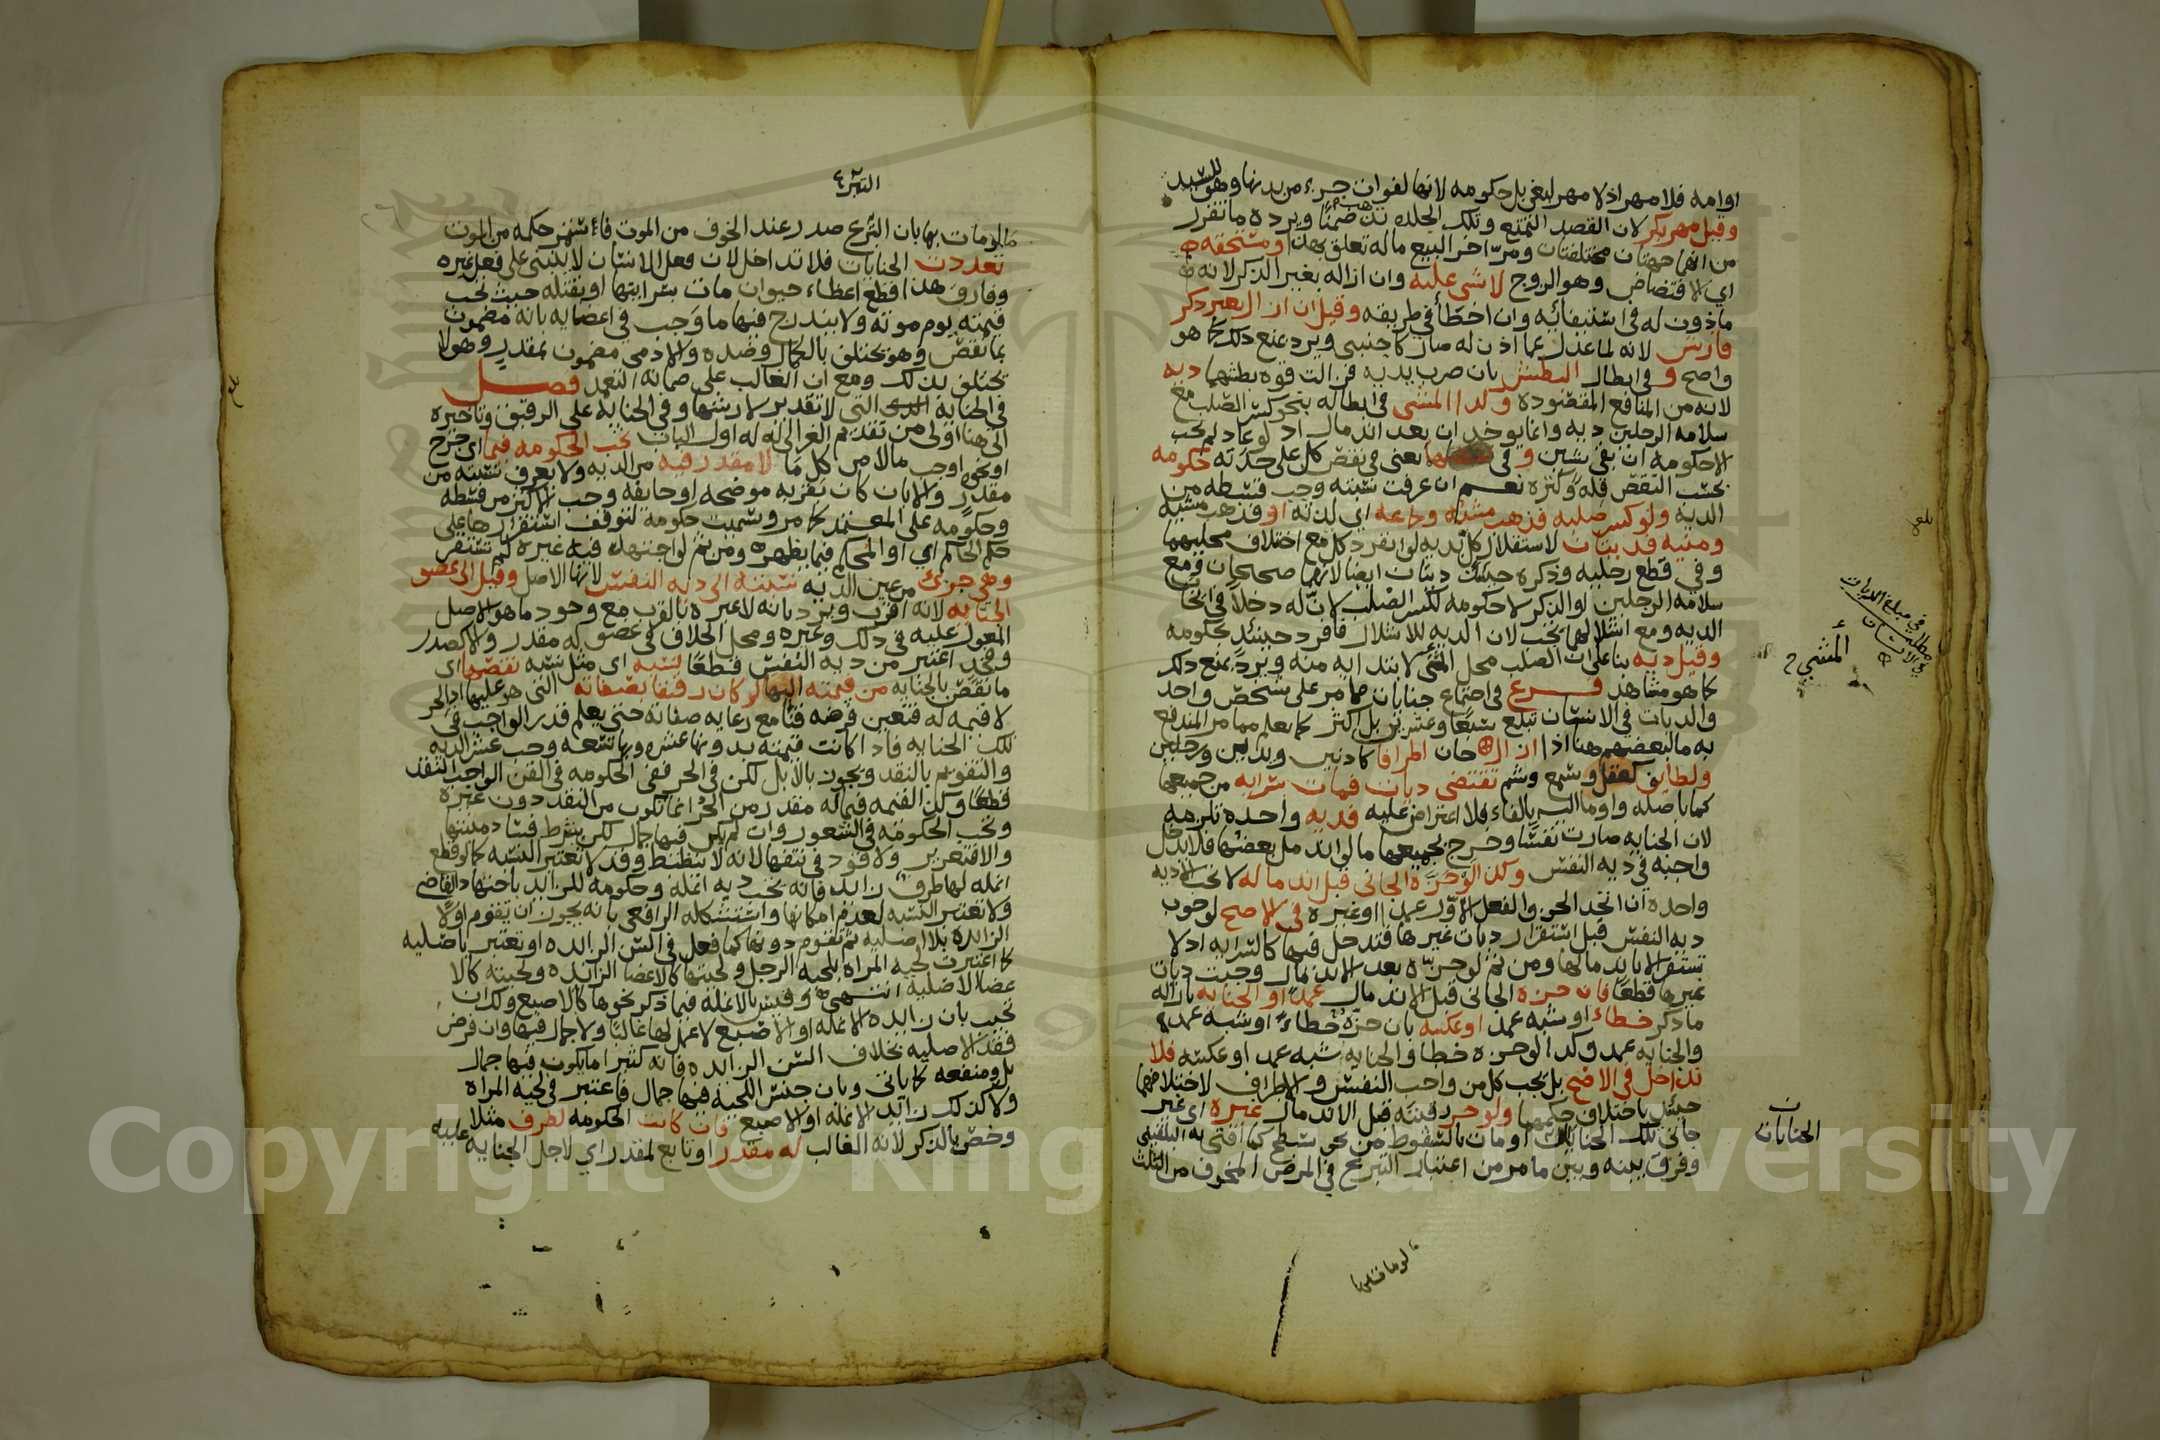 او امه فلا مهر اذ لا مهر لبغي بل حكومه لانها لفوات جزء من بدنها وهو للسيد
وقيل مهر بكر لان القصد التمتع وتلك الجلدة تذهب ضمنا ويرده ما تقرر
من انهما جهتان مختلفتان ومر اخر البيع ما له تعلق بهذا ومستحقه
اي الاقتضاض وهو الزوج لا شي عليه وان ازاله بغير الذكر لانه
ماذون له في استيفائه وان اخطأ في طريقه وقيل ان ازال بغير ذكر
فارش لانه لما عدل عما اذن له صار كاجنبي ويرد بمنع ذلك كما هو
واضح و في ابطال البطش بان ضرب يديه فزالت قوة بطشهما دية
لانه من المنافع المقصوده وكذا المشي في ابطاله بنحو كسر الصلب مع
سلامه الرجلين ديه وانما يوخذان بعد اندمال اذ لو عاد لم يجب
الا حكومه ان بقي شين و في نقصهما يعني في نقص كل على حدته حكومه
بحسب النقص قلة وكثرة نعم ان عرفت نسبته وجب قسطه من
الديه ولو كسر صلبه فذهب مشيه وجماعه اي لذته او فذهب مشيه
ومنيه فديتان لاستقلال كل بديه لو انفرد كل مع اختلاف محليهما
وفي قطع رجليه وذكره حينئذ ديتان ايضا لانهما صحيحان ومع
سلامه الرجلين او الذكر لا حكومه لكسر الصلب لان له دخلا في ايجاب
الديه ومع اشلالهما يجب لان الديه للاشلال فافرد حينئذ بحكومه
وقيل ديه بناء على ان الصلب محل المني لابتدائه منه ويرد بمنع ذلك
كما هو مشاهد فــرع في اجتماع جنايات مما مر على شخص واحد
والديات في الانسان تبلغ سبعا وعشرين بل اكثر كما يعلم مما مر المندفع
به ما لبعضهم هنا اذا ازال الجان اطرافا كاذنين ويدين ورجلين
ولطائف كعقل وسمع وشم تقتضي ديات فمات سراية من جميعها
كما باصله واوما اليه بالفاء فلا اعتراض عليه فدية واحدة تلزمه
لان الجنايه صارت نفسا وخرج بجميعها ما لو اندمل بعضها فلا يدخل
واجبه في ديه النفس وكذا لو حزه الجاني قبل اندماله لا يجب الا ديه
واحده ان اتحد الحز والفعل الاول عمدا او غيره في الاصح لوجوب
ديه النفس قبل استقرار ديات غيرها فتدخل فيها كالسرايه اذ لا
تستقر الا باندمالها ومن ثم لو حزه بعد الاندمال وجبت ديات
غيرها قطعا فان حزه الجاني قبل الاندمال عمدا او الجنايه بازاله
ما ذكر خطاء او شبه عمد او عكسه بان حزه خطاء او شبه عمد
والجنايه عمد وكذا لو حزه خطا والجنايه شبه عمد او عكسه فلا
تداخل في الاصح بل يجب كل من واجب النفس والاطراف لاختلافهما
حينئذ باختلاف حكمهما ولو حز رقبته قبل الاندمال غيره اي غير
جاني تلك الجنايات او مات بالسقوط من نحو سطح كما افتى به البلقيني
وفرق بينه وبين ما مر من اعتبار التبرع في المرض المخوف من الثلث
مطلب في مبلغ الديات
في الانسان
المشي
بلغ
الجنايات
التبرع
لو مات بها بان التبرع صدر عند الخوف من الموت فاستمر حكمه من الموت
تعددت الجنايات فلا تداخل لان فعل الانسان لا يبنى على فعل غيره
وفارق هذا قطع اعضاء حيوان مات بسرايتها او بقتله حيث تجب
قيمته يوم موته ولا يندرج فيها ما وجب في اعضايه بانه مضمون
بما نقص وهو يختلف بالكمال وضده والادمي مضمون بمقدر وهو لا
يختلف بذلك ومع ان الغالب على ضمانه التعبد فصــل
في الجنايه التي لا تقدير لارشها وفي الجناية على الرقيق وتاخيره
الى هنا اولى من تقديم الغزالي له اول الباب تجب الحكومه فيما اي جرح
او نحوه اوجب مالا من كل ما لا مقدر فيه من الديه ولا يعرف نسبته من
مقدر والا بان كان بقربه موضحه او جايفه وجب الاكثر من قسطه
وحكومه على المعتمد كما مر وسميت حكومة لتوقف استقرارها على
حكم الحاكم اي او المحكم فيما يظهر ومن ثم لو اجتهد فيه غيره لم تستقر
وهي جزئ من عين الديه نسبته الى ديه النفس لانها الاصل وقيل الى عضو
الجنايه لانه اقرب ويرد بانه لا عبرة بالقرب مع وجود ما هو الاصل
المعول عليه في ذلك وغيره ومحل الخلاف في عضو له مقدر والا كصدر
وفخذ اعتبر من ديه النفس قطعا نسبة اي مثل نسبه نقصها اي
ما نقص بالجنايه من قيمته اليها لو كان رقيقا بصفاته التي هو عليها اذ الحر
لا قيمه له فتعين فرضه قنا مع رعايه صفاته حتى يعلم قدر الواجب في
تلك الجنايه فاذا كانت قيمته بدونها عشره وبها تسعه وجب عشر الديه
والتقويم بالنقد ويجوز بالابل لكن في الحر ففي الحكومه في القن الواجب النقد
قطعا وكذا القيمه فيما له مقدر من الحر انما تكون من النقد دون غيره
وتجب الحكومة في الشعور وان لم يكن فيها جمال لكن بشرط فساد منبتها
والا فتعزير ولا قود في نتفها لانه لا ينضبط وقد لا تعتبر النسبه كما لو قطع
انمله لها طرف زايد فانه يجب ديه انمله وحكومه للزايد باجتهاد القاضي
ولا تعتبر النسبه لعدم امكانها واستشكله الرافعي بانه يجوز ان تقوم اولا
الزايده بلا اصليه ثم تقوم دونها كما فعل في السن الزايده او تعتبر باصليه
كما اعتبرت لحيه المراه بلحيه الرجل ولحيتها كالاعضا الزايده ولحيته كالا
عضا الاصليه انتهى وقيس بالانمله فيما ذكر نحوها كالاصبع وكذا ان
تجيب بان زايده الانمله او الاصبع لا عمل لها غالبا ولا جمال فيها وان فرض
فقد الاصليه بخلاف السن الزايده فانه كثيرا ما يكون فيها جمال
بل ومنفعه كما ياتي وبان جنس اللحيه فيها جمال فاعتبر في لحيه المراه
ولا كذلك زايد الانمله او الاصبع فان كانت الحكومه لطرف مثلا
وخص بالذكر لانه الغالب له مقدر او تابع لمقدر اي لاجل الجنايه عليه
Copyright © King Saud University